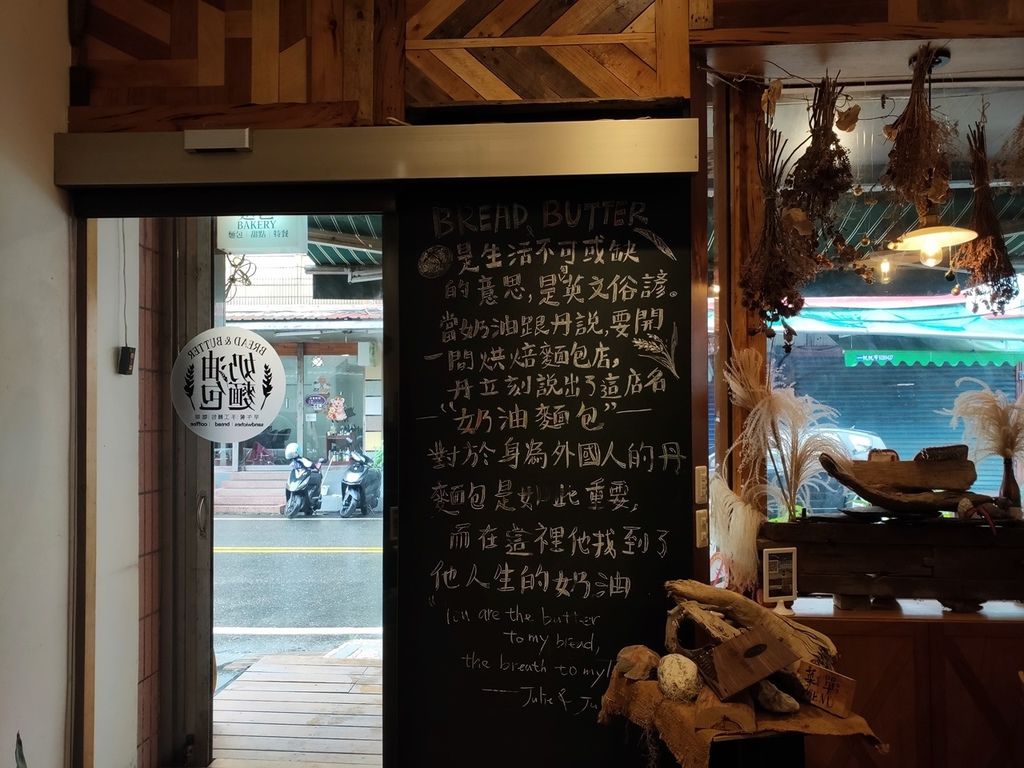 BREAD BUTTER
是生活不可或缺
的意思,是英文俗諺。
當奶油跟丹說,要開
一間烘焙麵包店,
丹立刻說出了這店名
—"奶油麵包"—
對於身為外國人的丹
麵包是如此重要,
而在這裡他找到了
他人生的奶油
"You are the butter
to my bread,
the breath to my
—Julie & Ju
BAKERY
麵包 | 甜點 | 特餐
BREAD & BUTTER
奶油
麵包
sandwiches | bread | coffee
菜單